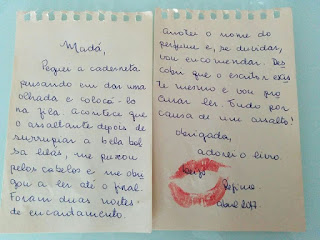 Madá,
Peguei a caderneta
pensando em dar uma
olhada e colocá-lo
na fila. Acontece que
o assaltante depois de
surrupiar a bela bol
sa lilás, me puxou
pelos cabelos e me obri
gou a ler até o final.
Foram duas noites
de encantamento.
anotei o nome do
perfume e, se duvidar,
vou encomendar. Des
cobri que o escritor exis
te mesmo e vou pro
curar ler. Tudo por
causa de um assalto!
Obrigada,
adorei o livro
Regina
Abril 2017